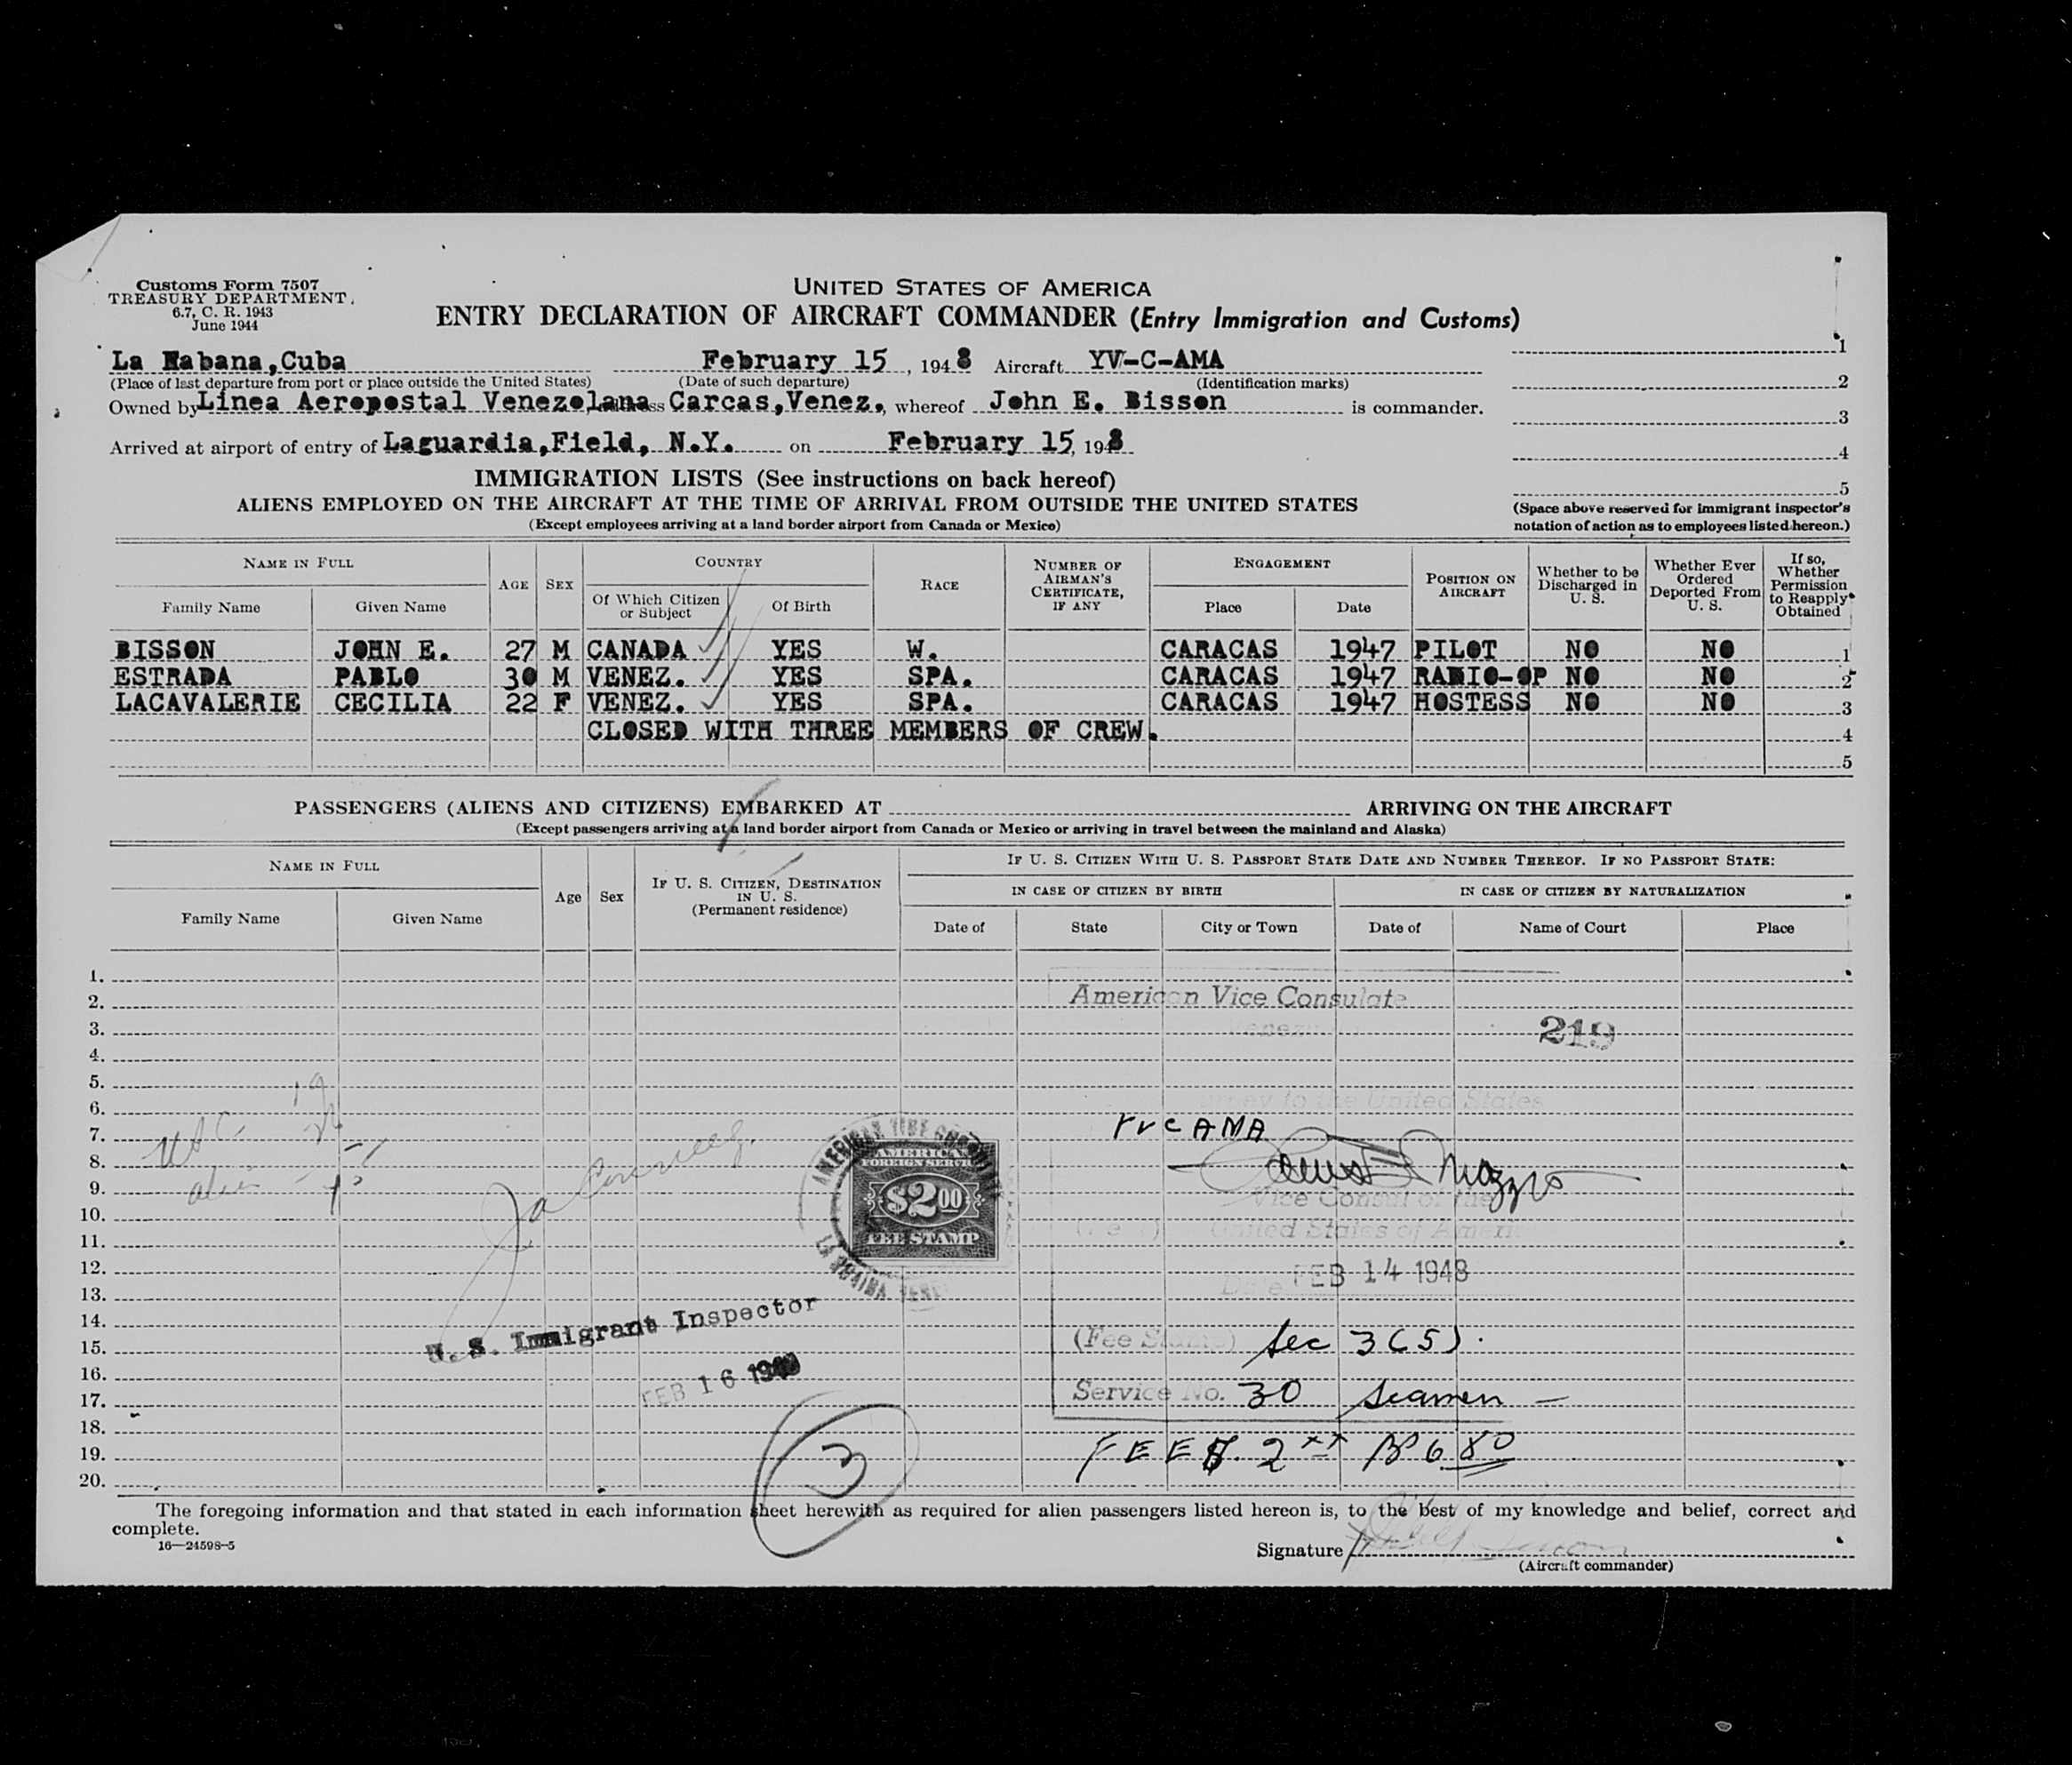 Customs Form 7507
TREASURY DEPARTMENT
6.7, C. R. 1943
June 1944
UNITED STATES OF AMERICA
ENTRY DECLARATION OF AIRCRAFT COMMANDER (Entry Immigration and Customs)
La Habana, Cuba February 15, 1948 Aircraft YV-C-AMA 1
(Place of last departure from port or place outside the United States) (Date of such departure) (Identification marks) 2
Owned by Linea Aeropostal Venezolana Carcas, Venez., whereof John E. Bisson is commander. 3
Arrived at airport of entry of Laguardia, Field, N.Y. on February 15, 198 4
IMMIGRATION LISTS (See instructions on back hereof) 5
ALIENS EMPLOYED ON THE AIRCRAFT AT THE TIME OF ARRIVAL FROM OUTSIDE THE UNITED STATES
(Except employees arriving at a land border airport from Canada or Mexico)
(Space above reserved for immigrant inspector's
notation of action as to employees listed hereon.)
NAME IN FULL AGE SEX COUNTRY RACE NUMBER OF AIRMAN'S CERTIFICATE, IF ANY ENGAGEMENT POSITION ON AIRCRAFT Whether to be Discharged in U. S. Whether Ever Ordered Deported From U. S. If so, Whether Permission to Reapply Obtained
Family Name Given Name Of Which Citizen or Subject Of Birth Place Date
BISSON JOHN E. 27 M CANADA YES W. CARACAS 1947 PILOT NO NO 1
ESTRADA PABLO 30 M VENEZ. YES SPA. CARACAS 1947 RADIO-OP NO NO 2
LACAVALERIE CECILIA 22 F VENEZ. YES SPA. CARACAS 1947 HOSTESS NO NO 3
CLOSED WITH THREE MEMBERS OF CREW. 4
5
PASSENGERS (ALIENS AND CITIZENS) EMBARKED AT ARRIVING ON THE AIRCRAFT
(Except passengers arriving at a land border airport from Canada or Mexico or arriving in travel between the mainland and Alaska)
NAME IN FULL Age Sex IF U. S. CITIZEN, DESTINATION IN U. S. (Permanent residence) IF U. S. CITIZEN WITH U. S. PASSPORT STATE DATE AND NUMBER THEREOF. IF NO PASSPORT STATE:
IN CASE OF CITIZEN BY BIRTH IN CASE OF CITIZEN BY NATURALIZATION
Family Name Given Name Date of State City or Town Date of Name of Court Place
1.
2. American Vice Consulate
3. 219
4.
5.
6. to the United States
7. YVCAMA
8.
9. Vice Consul of the
10. United States of Ameri
11.
12. FEB 14 1948
13. Date
14.
15. (Fee Stamp) Sec 3(5).
16.
17. Service No. 30 Seamen -
18.
19. FEE $.2 BS 6.80
20.
alien
AMERICAN FOREIGN SERVICE
$2.00
FEE STAMP
U. S. Immigrant Inspector
FEB 16 1948
3
The foregoing information and that stated in each information sheet herewith as required for alien passengers listed hereon is, to the best of my knowledge and belief, correct and
complete.
16—24598-5
Signature
(Aircraft commander)